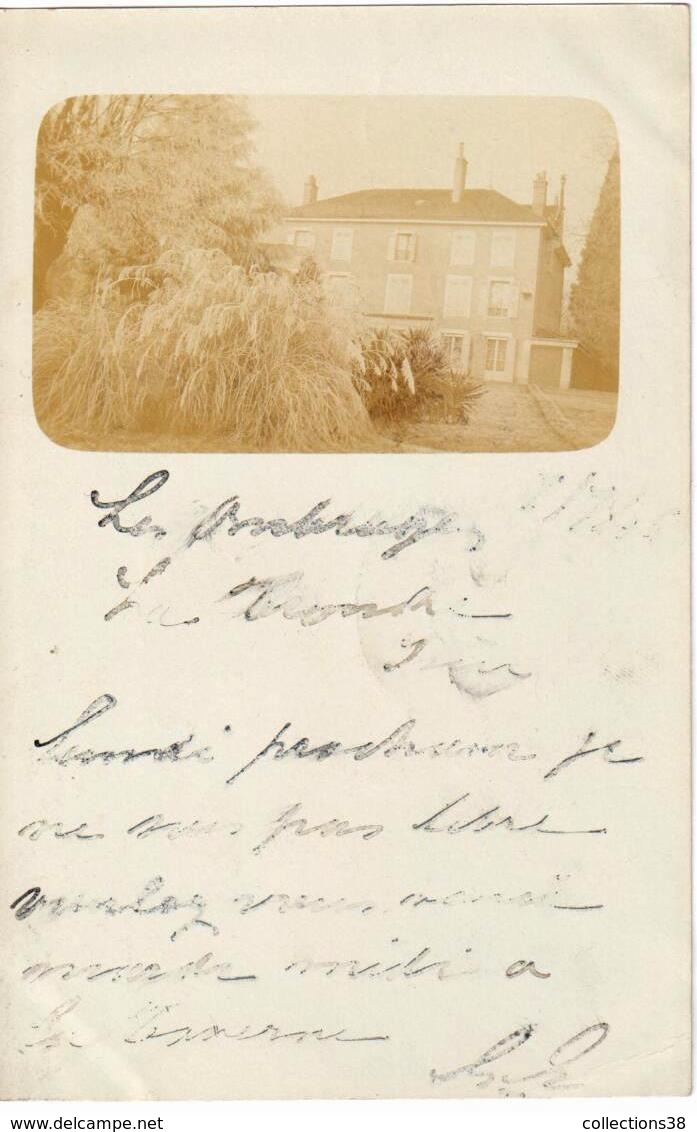 Les Ombrages
La Tronche
Isère
Lundi prochain je
ne suis pas libre
voulez vous venir
mardi midi a
la Taverne
www.delcampe.net
collections38